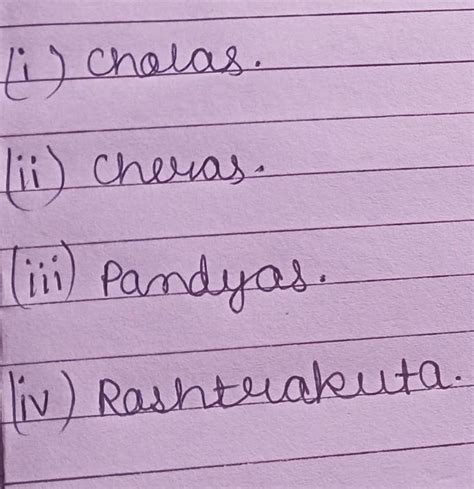 (i) Cholas.
(ii) Cheras.
(iii) Pandyas.
(iv) Rashtrakuta.